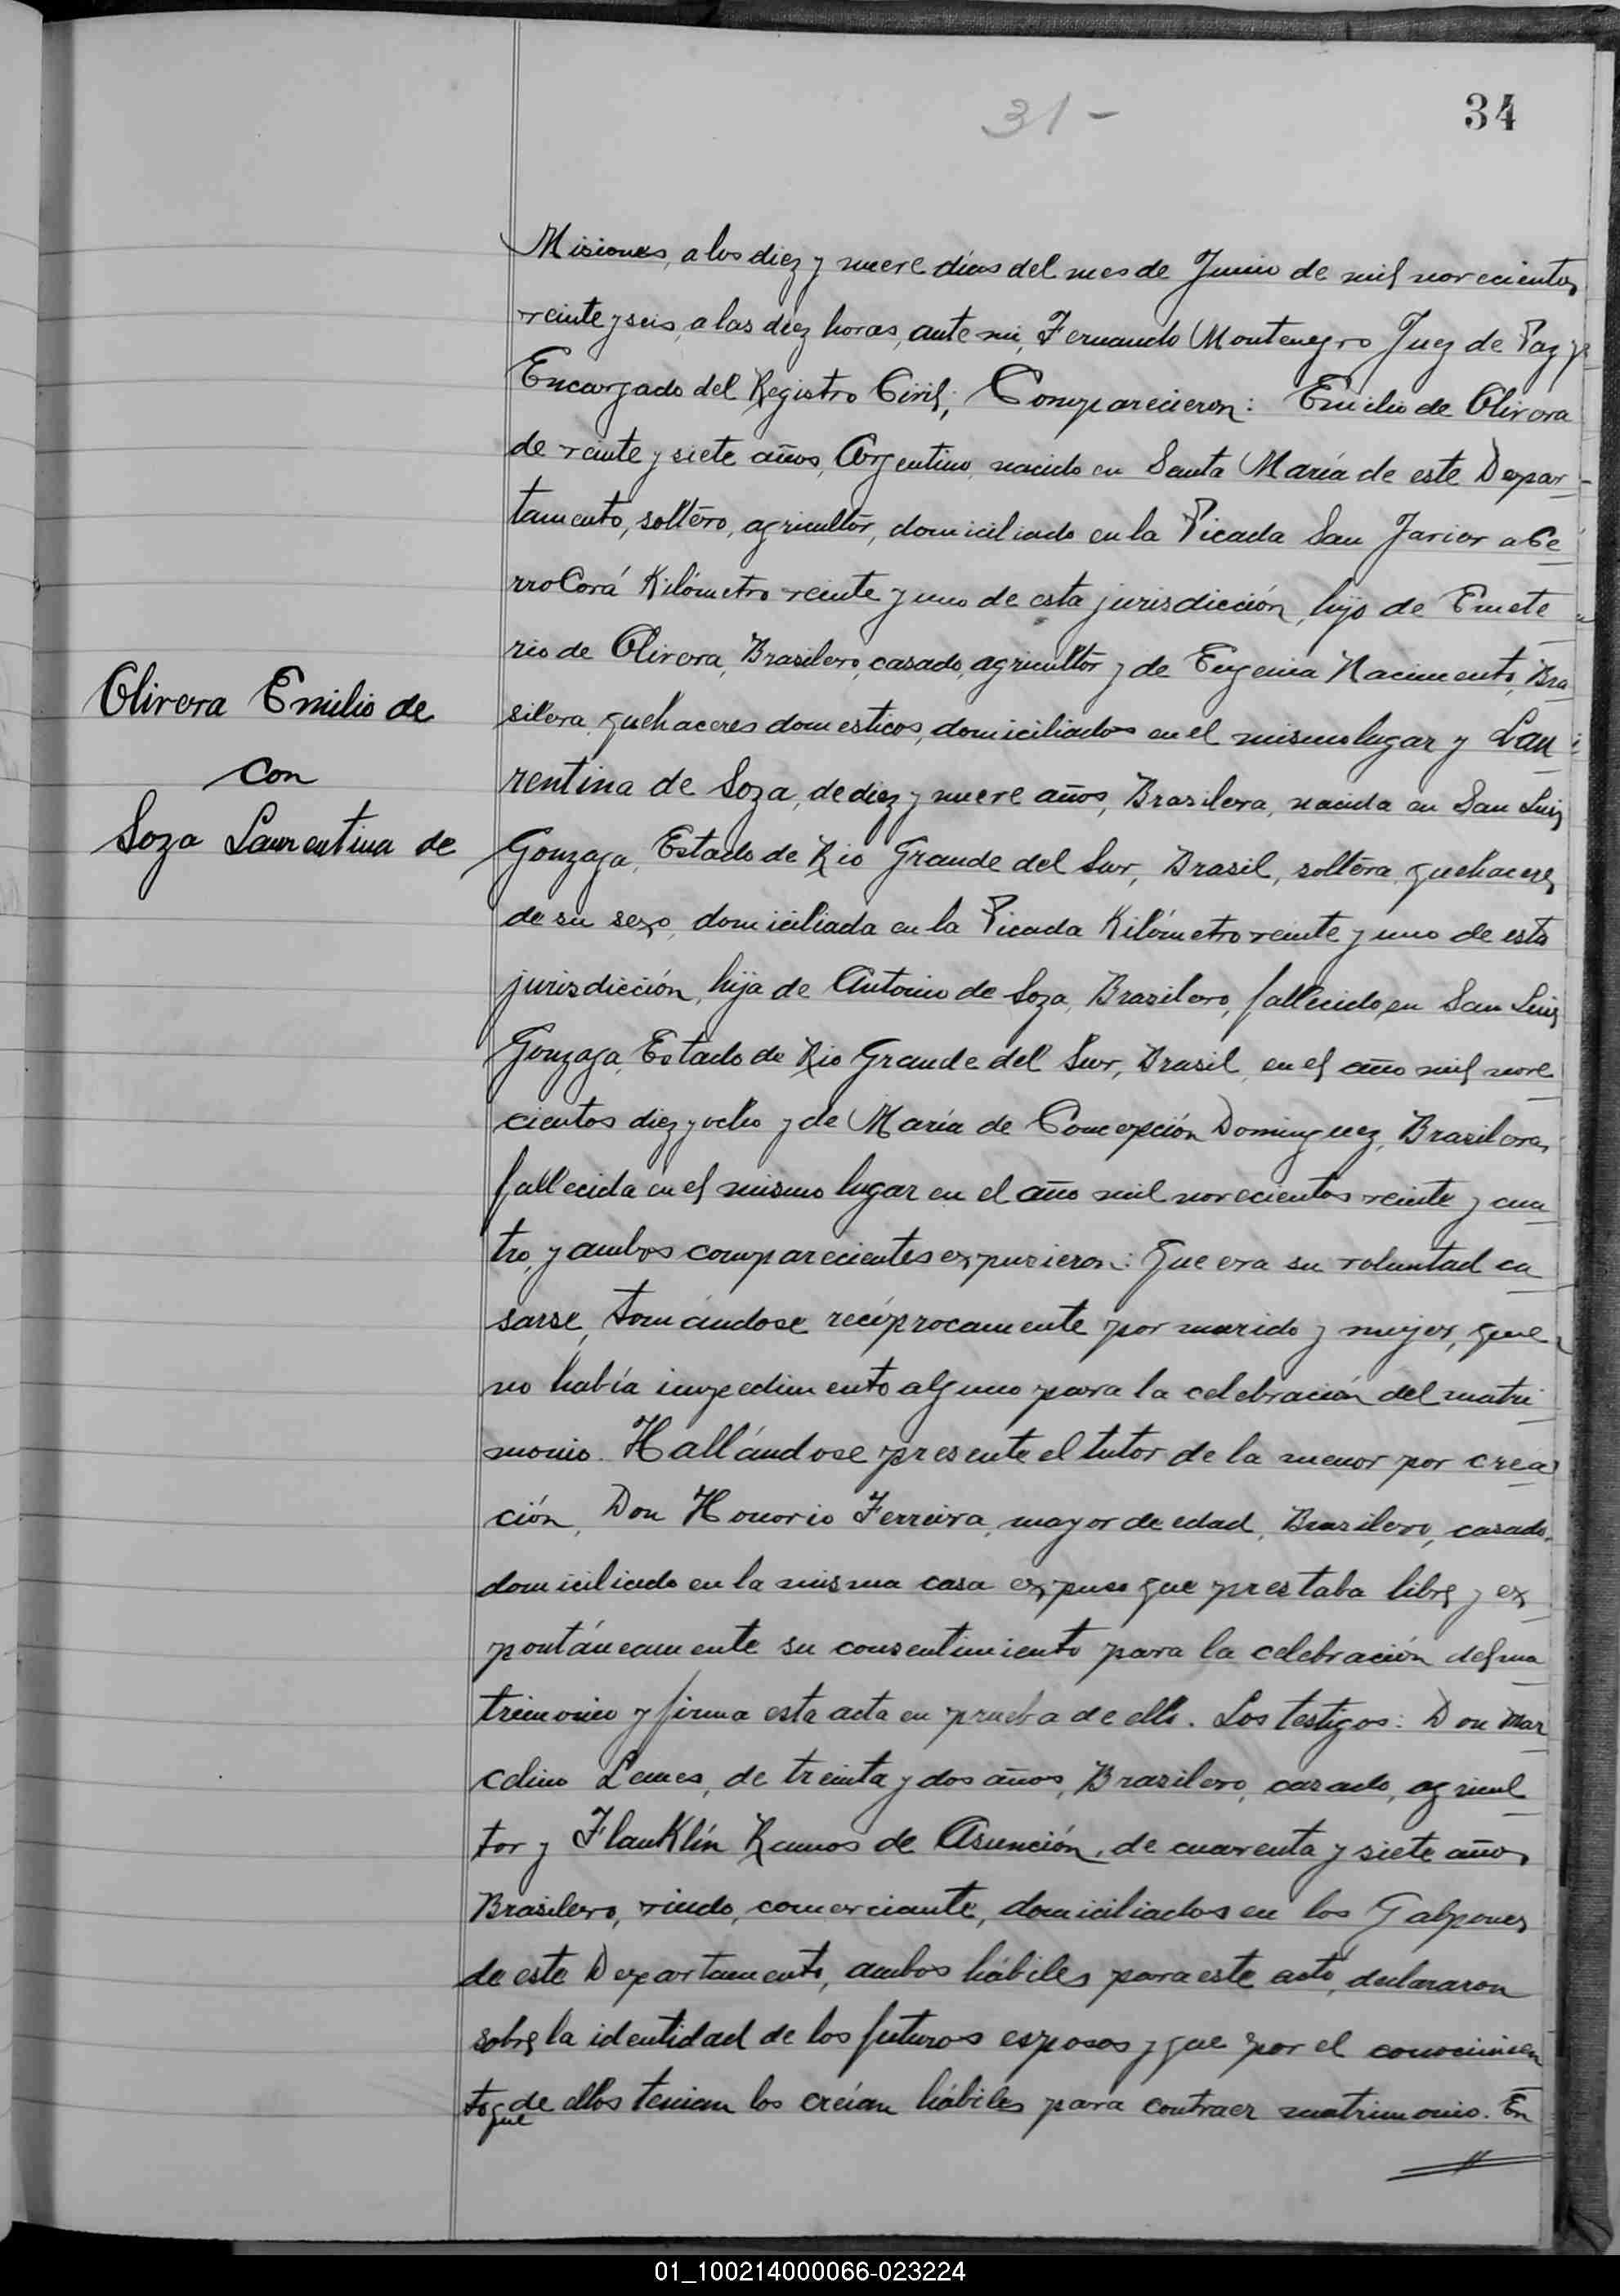 31-
34
Misiones, a los diez y nueve días del mes de Junio de mil novecientos
veinte y seis, a las diez horas, ante mi, Fernando Montenegro Juez de Paz y
Encargado del Registro Civil; Comparecieron: Emilio de Olivera
de veinte y siete años, Argentino, nacido en Santa María de este Depar-
tamento, soltéro, agricultor, domiciliado en la Picada San Javier a Ce
rro Corá Kilómetro veinte y uno de esta jurisdicción, hijo de Emete
rio de Olivera, Brasilero, casado, agricultor y de Eugenia Nacimento, Bra
silera, quehaceres domesticos, domiciliados en el mismo lugar y Lau
rentina de Soza, de diez y nueve años, Brasilera, nacida en San Luis
Gonzaga, Estado de Rio Grande del Sur, Brasil, soltéra, quehaceres
de su sexo, domiciliada en la Picada Kilómetro veinte y uno de esta
jurisdicción, hija de Antonio de Soza, Brasilero, fallecido, en San Luis
Gonzaga, Estado de Rio Grande del Sur, Brasil, en el año mil nove
cientos diez y ocho y de María de Concepción Dominguez, Brasilera,
fallecida en el mismo lugar en el año mil novecientos veinte y cua
tro, y ambos comparecientes expusieron: que era su voluntad ca
sarse, tomándose recíprocamente por marido y mujer, que
no había impedimento alguno para la celebración del matri
monio. Hallándose presente el tutor de la menor por crea
ción, Don Honorio Ferreira, mayor de edad, Brasilero, casado,
domiciliado en la misma casa expuso que prestaba libre y ex
pontáneamente su consentimiento para la celebración del ma
trimonio y firma esta acta en prueba de ello. Los testigos: Don Mar
celino Lemes, de treinta y dos años, Brasilero, casado, agricul
tor y Flanklín Ramos de Asunción, de cuarenta y siete años,
Brasilero, viudo, comerciante, domiciliados en los Galpones
de este Departamento, ambos hábiles para este acto, declararon
sobre la identidad de los futuros esposos y que por el conocimien
to que de ellos tenian los creían hábiles para contraer matrimonio. En
Olivera Emilio de
con
Soza Laurentina de
01_100214000066-023224